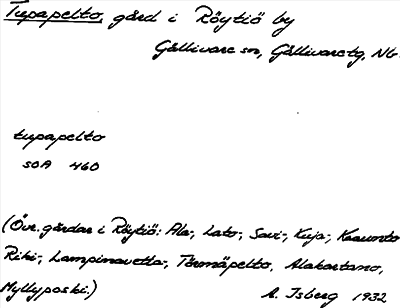 Tupapelto, gård i Röytiö by
Gällivare sn, Gällivare tg, Nb.
tupapelto
SOA 460
(Övr. gårdar i Röytiö: Ala-, Lato-, Savi-, Kuja-, Kraunto
Riki-, Lampinavetta-, Törmäpelto, Alakartano,
Myllyposki.)
A. Isberg 1932